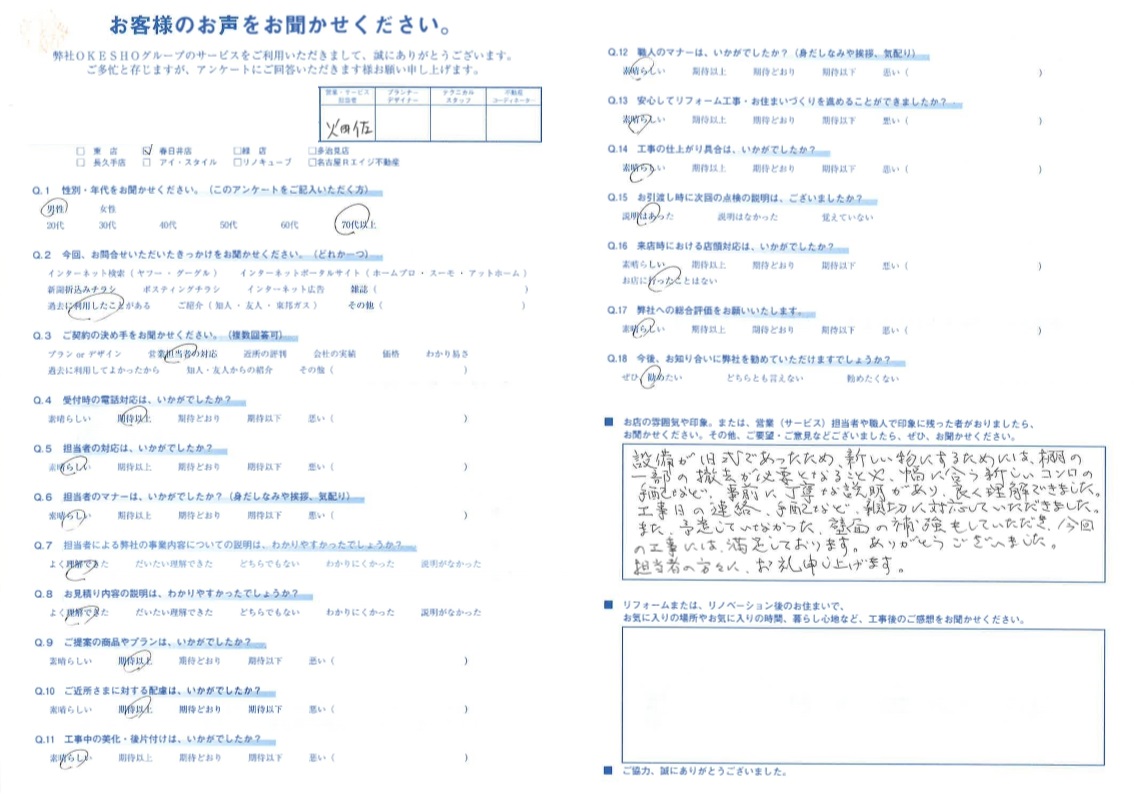 お客様のお声をお聞かせください。
弊社OKESHOグループのサービスをご利用いただきまして、誠にありがとうございます。
ご多忙と存じますが、アンケートにご回答いただきます様お願い申し上げます。
営業・サービス担当者 プランナーデザイナー テクニカルスタッフ 不動産コーディネーター
□ 東 店 ☑ 春日井店 □緑 店 □多治見店
□ 長久手店 □ アイ・スタイル □リノキューブ □名古屋Rエイジ不動産
Q.1 性別・年代をお聞かせください。(このアンケートをご記入いただく方)
男性 女性
20代 30代 40代 50代 60代 70代以上
Q.2 今回、お問合せいただいたきっかけをお聞かせください。(どれか一つ)
インターネット検索(ヤフー・グーグル) インターネットポータルサイト(ホームプロ・スーモ・アットホーム)
新聞折込みチラシ ポスティングチラシ インターネット広告 雑誌( )
過去に利用したことがある ご紹介(知人・友人・東邦ガス) その他( )
Q.3 ご契約の決め手をお聞かせください。(複数回答可)
プラン or デザイン 営業担当者の対応 近所の評判 会社の実績 価格 わかり易さ
過去に利用してよかったから 知人・友人からの紹介 その他( )
Q.4 受付時の電話対応は、いかがでしたか?
素晴らしい 期待以上 期待どおり 期待以下 悪い( )
Q.5 担当者の対応は、いかがでしたか?
素晴らしい 期待以上 期待どおり 期待以下 悪い( )
Q.6 担当者のマナーは、いかがでしたか?(身だしなみや挨拶、気配り)
素晴らしい 期待以上 期待どおり 期待以下 悪い( )
Q.7 担当者による弊社の事業内容についての説明は、わかりやすかったでしょうか?
よく理解できた だいたい理解できた どちらでもない わかりにくかった 説明がなかった
Q.8 お見積り内容の説明は、わかりやすかったでしょうか?
よく理解できた だいたい理解できた どちらでもない わかりにくかった 説明がなかった
Q.9 ご提案の商品やプランは、いかがでしたか?
素晴らしい 期待以上 期待どおり 期待以下 悪い( )
Q.10 ご近所さまに対する配慮は、いかがでしたか?
素晴らしい 期待以上 期待どおり 期待以下 悪い( )
Q.11 工事中の美化・後片付けは、いかがでしたか?
素晴らしい 期待以上 期待どおり 期待以下 悪い( )
Q.12 職人のマナーは、いかがでしたか?(身だしなみや挨拶、気配り)
素晴らしい 期待以上 期待どおり 期待以下 悪い( )
Q.13 安心してリフォーム工事・お住まいづくりを進めることができましたか?
素晴らしい 期待以上 期待どおり 期待以下 悪い( )
Q.14 工事の仕上がり具合は、いかがでしたか?
素晴らしい 期待以上 期待どおり 期待以下 悪い( )
Q.15 お引渡し時に次回の点検の説明は、ございましたか?
説明はあった 説明はなかった 覚えていない
Q.16 来店時における店頭対応は、いかがでしたか?
素晴らしい 期待以上 期待どおり 期待以下 悪い( )
お店に行ったことはない
Q.17 弊社への総合評価をお願いいたします。
素晴らしい 期待以上 期待どおり 期待以下 悪い( )
Q.18 今後、お知り合いに弊社を勧めていただけますでしょうか?
ぜひ、勧めたい どちらとも言えない 勧めたくない
■ お店の雰囲気や印象。または、営業(サービス)担当者や職人で印象に残った者がおりましたら、
お聞かせください。その他、ご要望・ご意見などございましたら、ぜひ、お聞かせください。
設備が旧式であったため、新しい物にするためには、棚の
一部の撤去が必要となることや、幅に合う新しいコンロの
手配など、事前に丁寧な説明があり、良く理解できました。
工事日の連絡、手配など、親切に対応していただきました。
また、予定していなかった、壁面の補強もしていただき、今回
の工事には、満足しております。ありがとうございました。
担当者の方々に、お礼申し上げます。
■ リフォームまたは、リノベーション後のお住まいで、
お気に入りの場所やお気に入りの時間、暮らし心地など、工事後のご感想をお聞かせください。
■ ご協力、誠にありがとうございました。